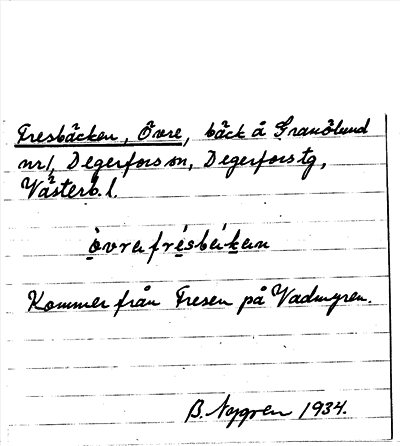 Fresbäcken, Övre, bäck å Granölund
nr 1, Degerfors sn, Degerfors tg,
Västerb. l.
òvrefrésbèkən
Kommer från Fresen på Vadmyren.
B. Nygren 1934.